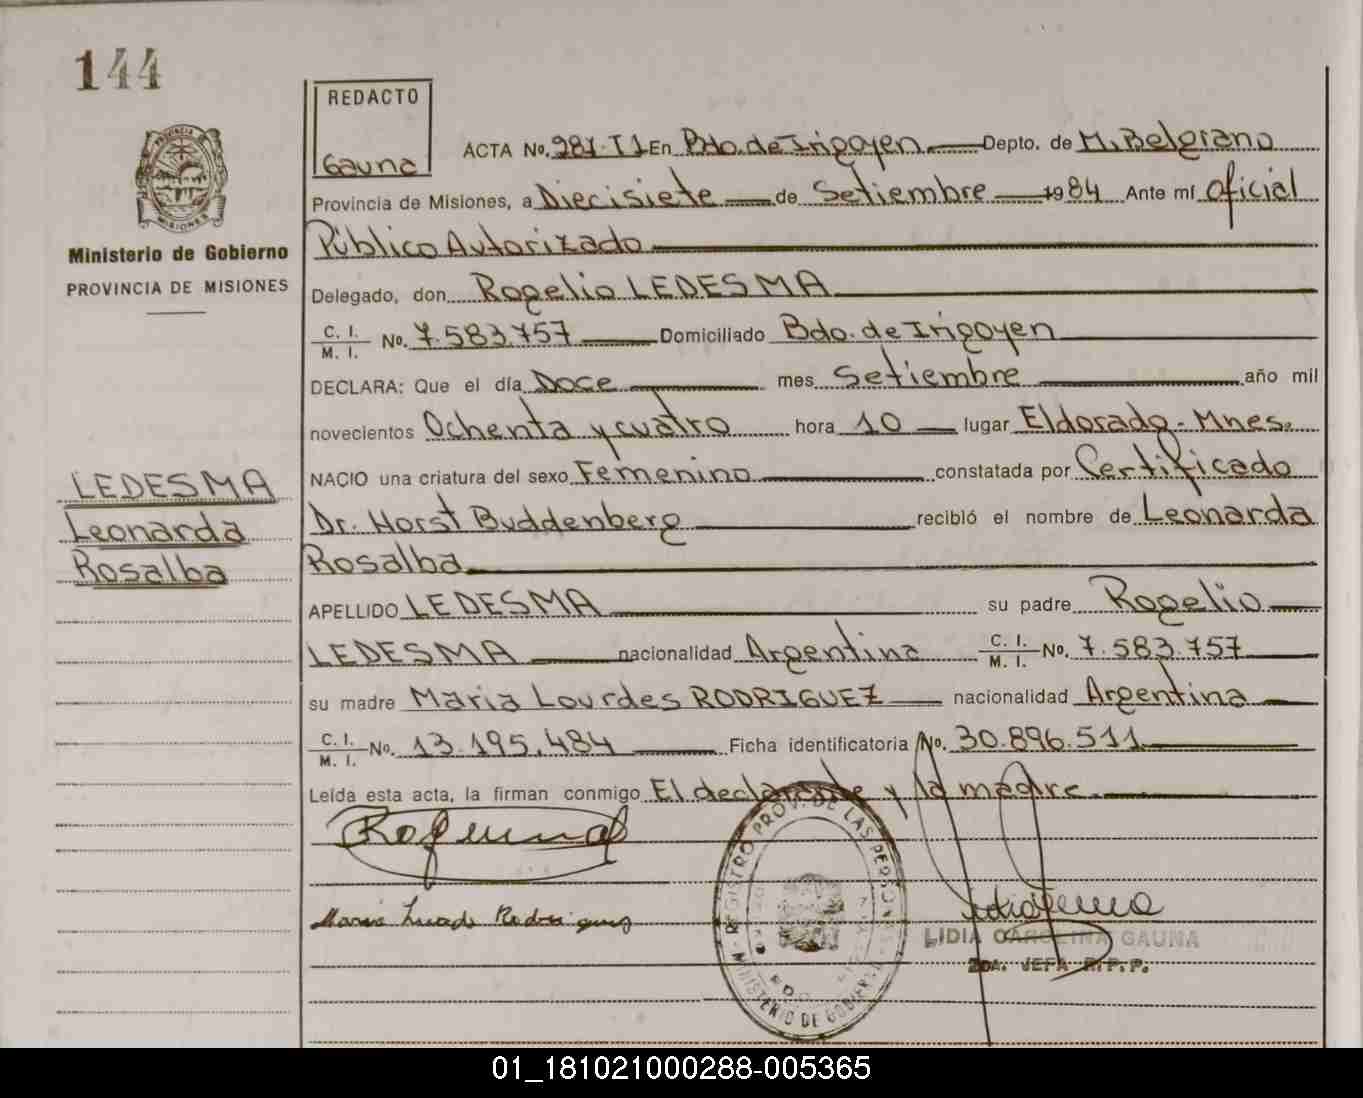 144
REDACTO
Gauna
ACTA No. 281-T1 En Bdo. de Irigoyen Depto. de M. Belgrano
Provincia de Misiones, a Diecisiete de Setiembre 1984 Ante mí Oficial
Público Autorizado
Ministerio de Gobierno
PROVINCIA DE MISIONES
Delegado, don Rogelio LEDESMA
C. I. / M. I. No. 7.583.757 Domiciliado Bdo. de Irigoyen
DECLARA: Que el día Doce mes Setiembre año mil
novecientos Ochenta y cuatro hora 10 lugar Eldorado - Mnes.
NACIO una criatura del sexo Femenino constatada por Certificado
LEDESMA
Leonarda
Rosalba
Dr. Horst Buddenberg recibló el nombre de Leonarda
Rosalba
APELLIDO LEDESMA su padre Rogelio
LEDESMA nacionalidad Argentina C. I. / M. I. No. 7.583.757
su madre Maria Lourdes RODRIGUEZ nacionalidad Argentina
C. I. / M. I. No. 13.195.484 Ficha identificatoria No. 30.896.511
Leída esta acta, la firman conmigo El declarante y la madre.
REGISTRO PROV. DE LAS PERSONAS
MINISTERIO DE GOBIERNO
LIDIA CAROLINA GAUNA
2DA. JEFA R.P.P.
01_181021000288-005365